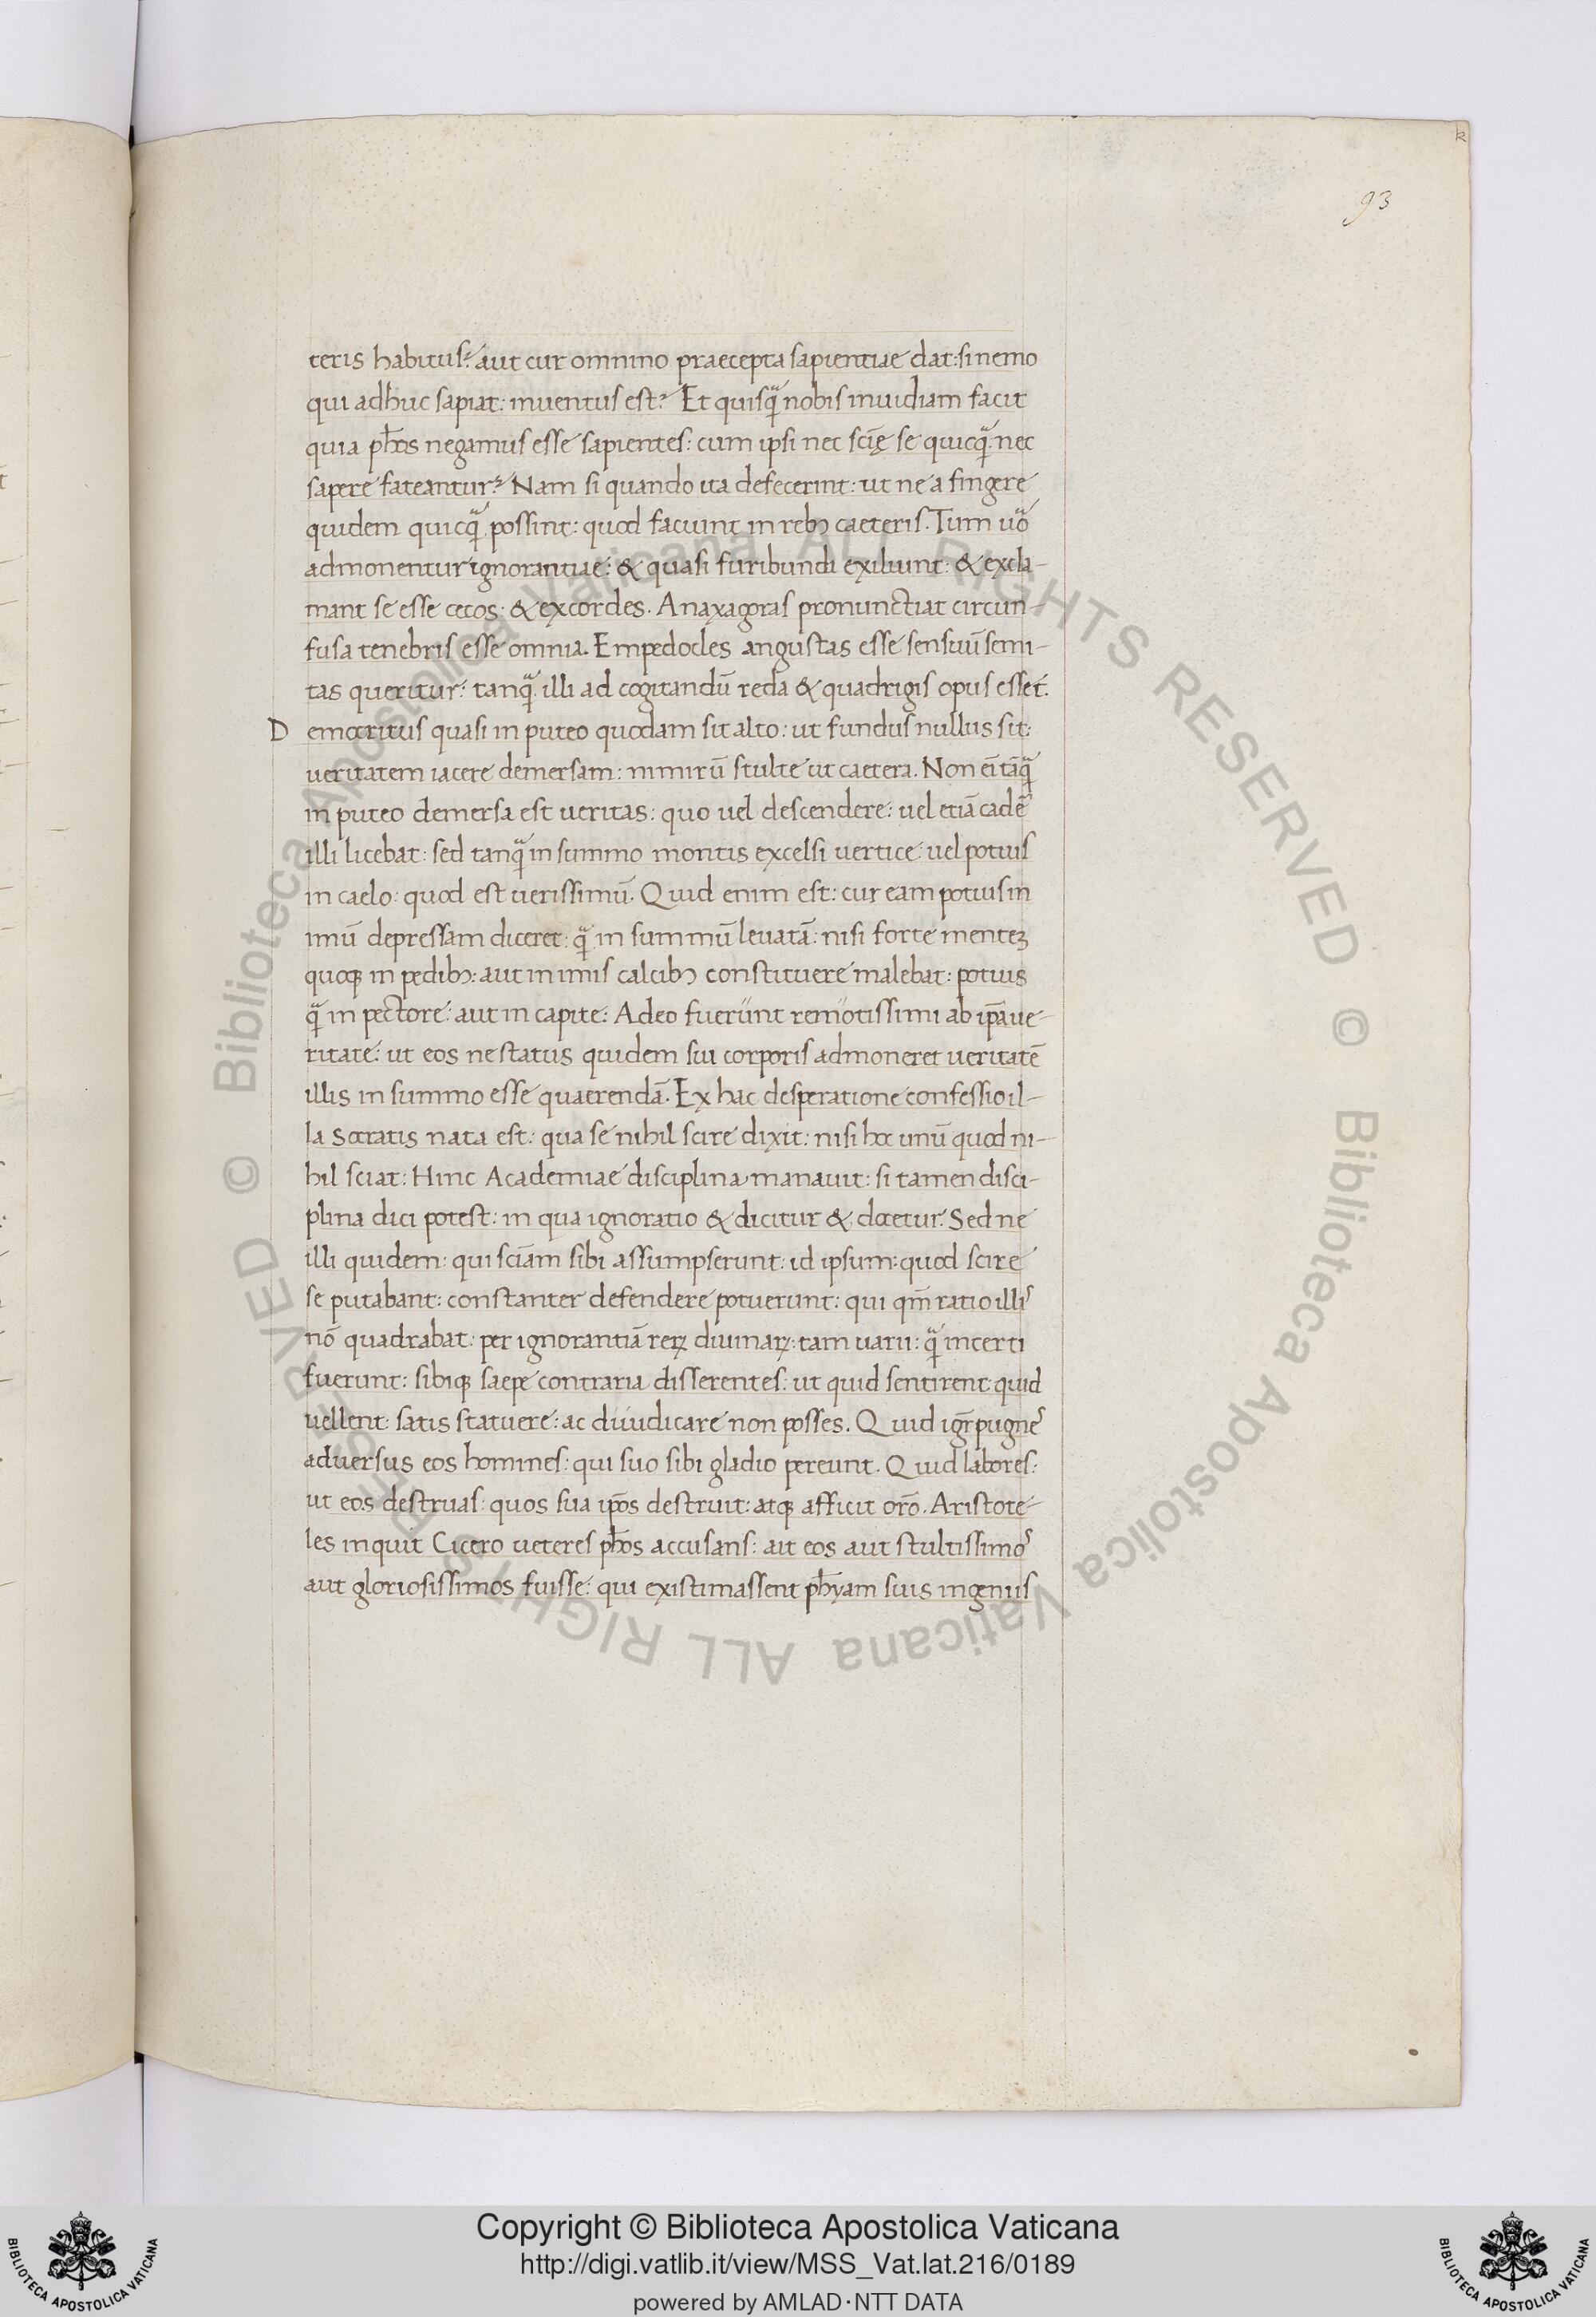 k
93
teris habitus? aut cur omnino praecepta sapientiae dat: si nemo
qui adhuc sapiat: inuentus est? Et quisq̃ nobis inuidiam facit
quia ph̃os negamus esse sapientes: cum ipsi nec scir̃e se quicq̃ nec
sapere fateantur? Nam si quando ita defecerint: ut ne a fingere
quidem quicq̃ possint: quod faciunt in rebꝫ caeteris. Tum uõ
admonentur ignorantiae: & quasi furibundi exiliunt: & excla-
mant se esse cecos: & excordes. Anaxagoras pronunctiat circun-
fusa tenebris esse omnia. Empedocles angustas esse sensuũ semi-
tas queritur: tanq̃ illi ad cogitandũ reda & quadrigis opus esset.
Democritus quasi in puteo quodam sit alto: ut fundus nullus sit:
ueritatem iacere demersam: nimirũ stulte ut caetera. Non eĩ tãq̃
in puteo demersa est ueritas: quo uel descendere: uel etiã cadẽ
illi licebat: sed tanq̃ in summo montis excelsi uertice: uel potius
in caelo: quod est uerissimũ. Quid enim est: cur eam potius in
imũ depressam diceret: q̃ in summũ leuatã: nisi forte menteꝫ
quoqꝫ in pedibꝫ: aut in imis calcibꝫ constituere malebat: potius
q̃ in pectore: aut in capite: Adeo fuerunt remotissimi ab ip̃a ue-
ritate: ut eos ne status quidem sui corporis admoneret ueritatẽ
illis in summo esse quaerendã. Ex hac desperatione confessio il-
la Socratis nata est: qua se nihil scire dixit: nisi hoc unũ quod ni-
hil sciat: Hinc Academiae disciplina manauit: si tamen disci-
plina dici potest: in qua ignoratio & dicitur & docetur. Sed ne
illi quidem: qui scĩam sibi assumpserunt: id ipsum: quod scire
se putabant: constanter defendere potuerunt: qui qm̃ ratio illis
nõ quadrabat: per ignorantiã reꝝ diuinaꝝ: tam uarii: q̃ incerti
fuerunt: sibiqꝫ saepe contraria disserentes: ut quid sentirent: quid
uellent: satis statuere: ac diiudicare non posses. Quid igr̃ pugnes
aduersus eos homines: qui suo sibi gladio pereunt. Quid labores:
ut eos destruas: quos sua ip̃os destruit: atqꝫ afficit orõ. Aristote-
les inquit Cicero ueteres ph̃os accusans: ait eos aut stultissimos
aut gloriosissimos fuisse: qui existimassent ph̃yam suis ingeniis
© Biblioteca Apostolica Vaticana ALL RIGHTS RESERVED © Biblioteca Apostolica Vaticana ALL RIGHTS RESERVED
Copyright © Biblioteca Apostolica Vaticana
http://digi.vatlib.it/view/MSS_Vat.lat.216/0189
powered by AMLAD·NTT DATA
BIBLIOTECA APOSTOLICA VATICANA
BIBLIOTECA APOSTOLICA VATICANA